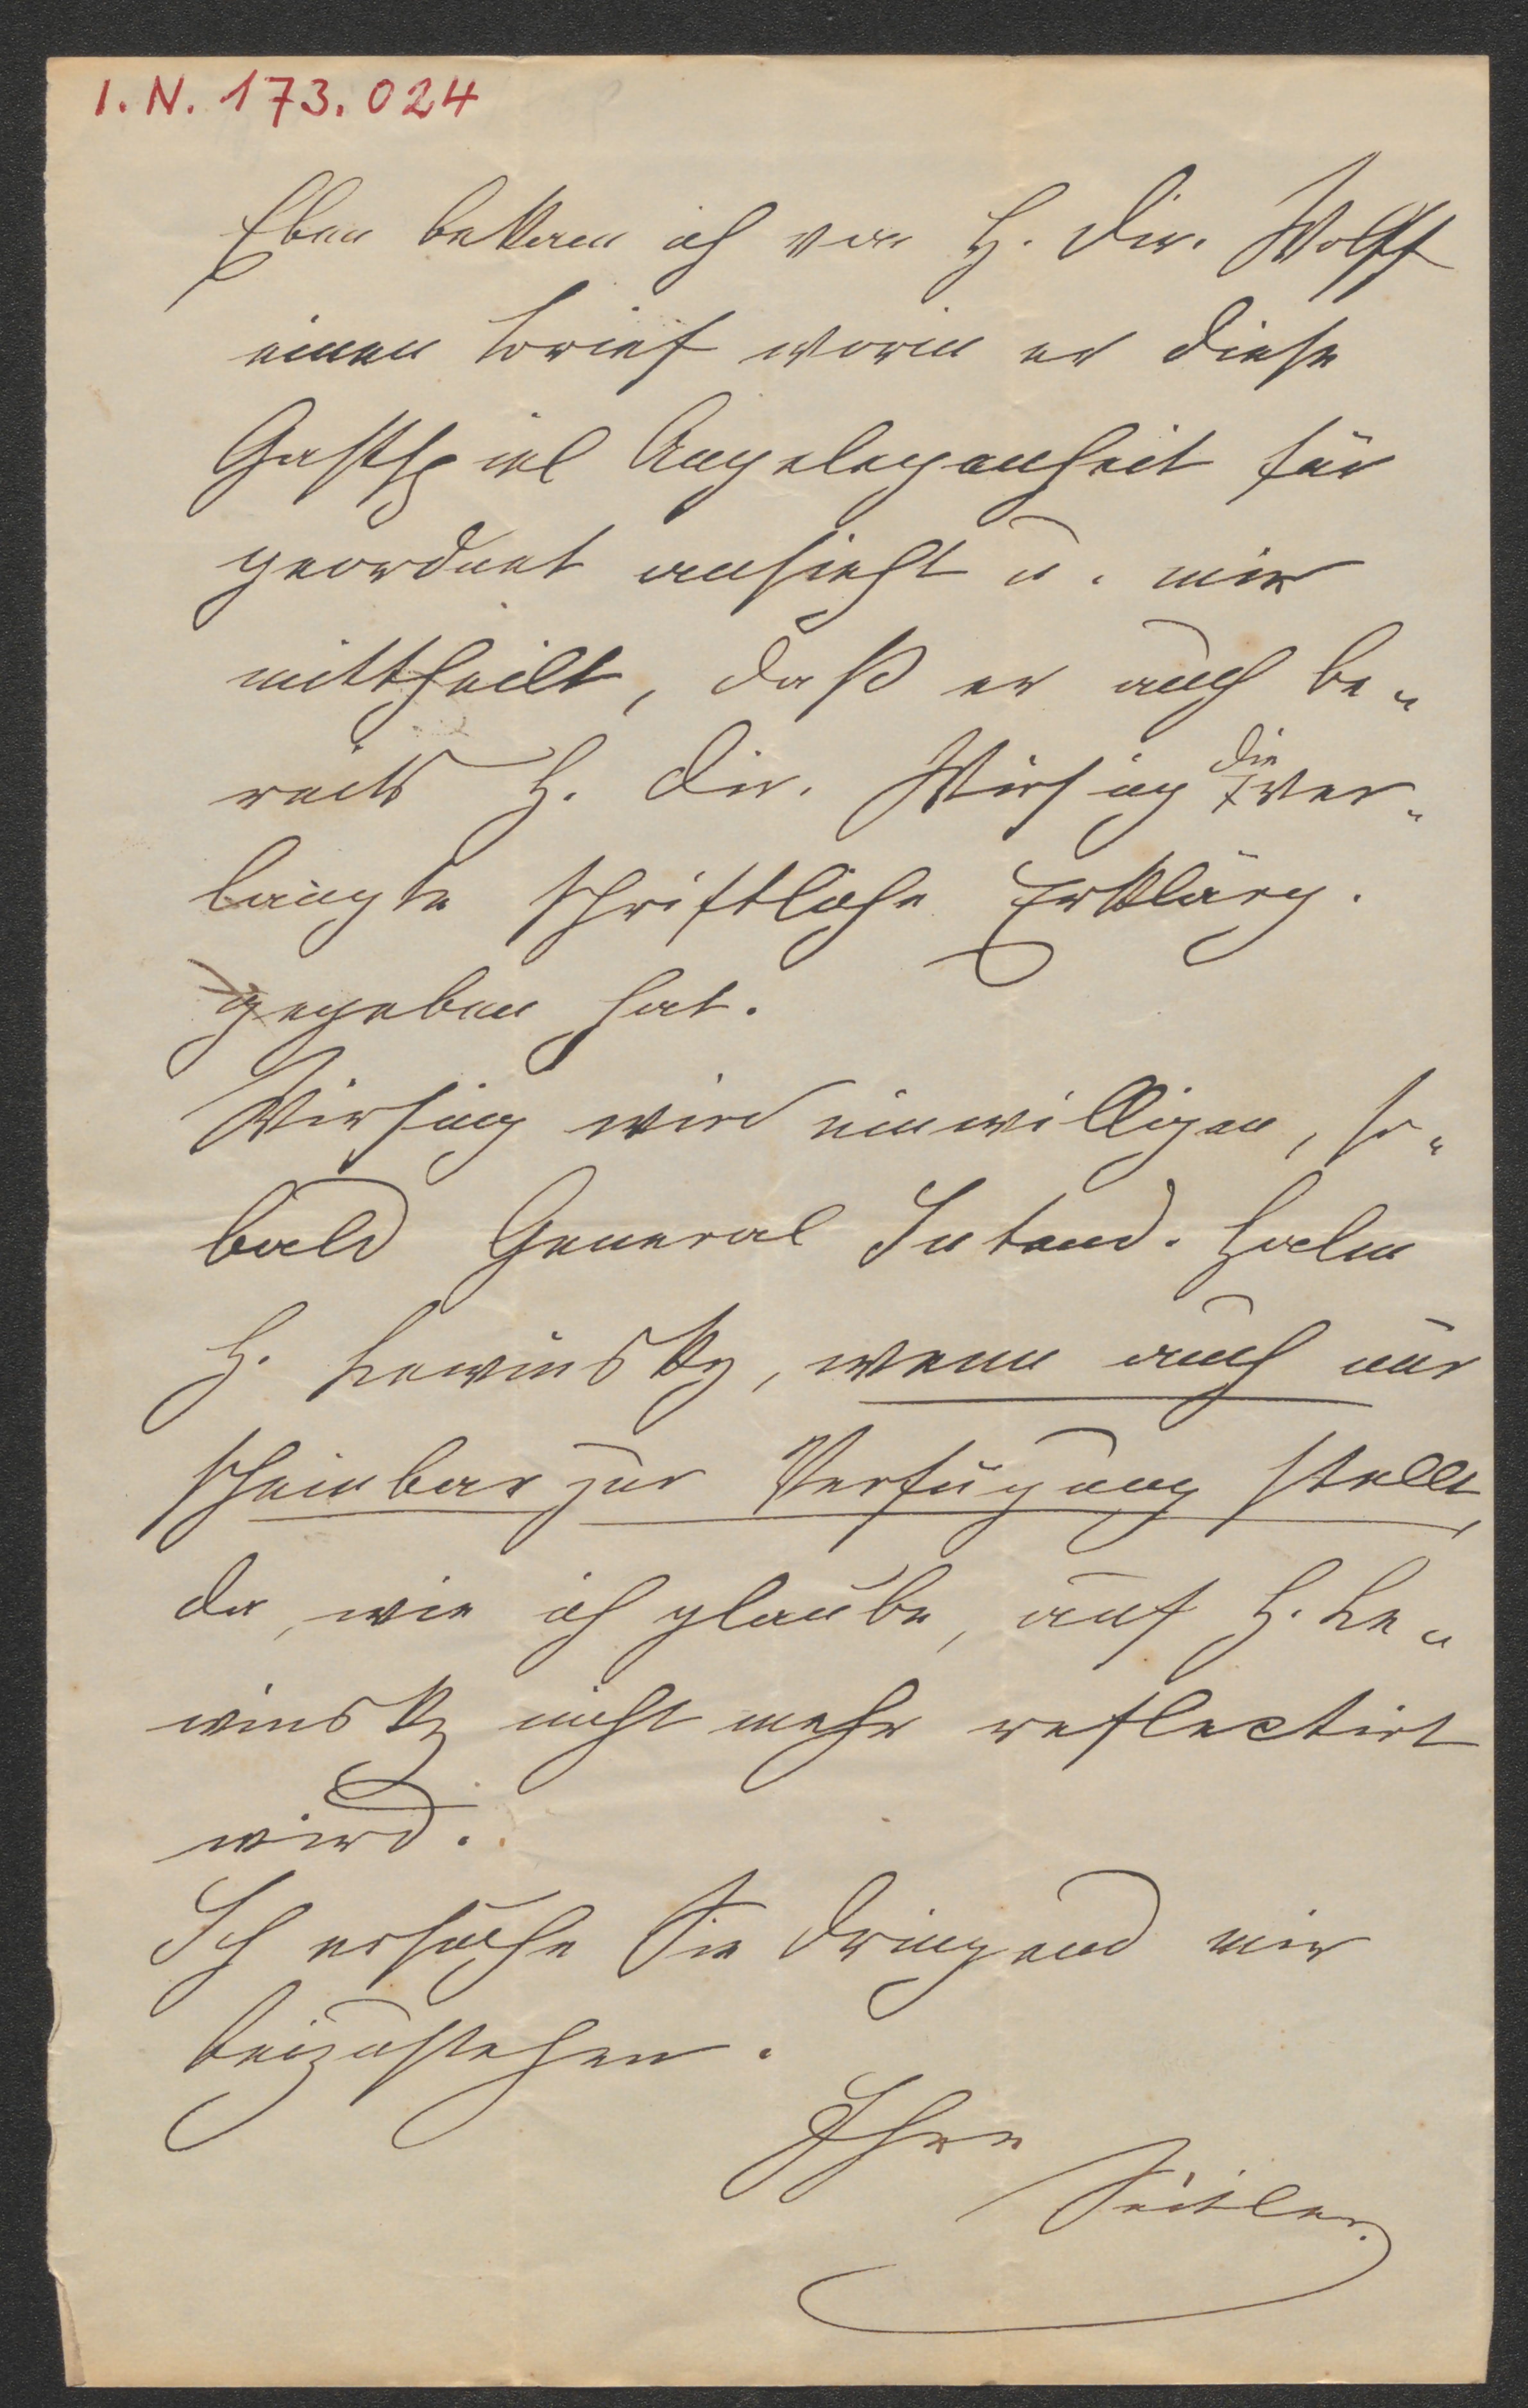 I.N. 173.024
Eben bekam ich von H. Dir. Wolff
einen Brief worin er diese
Gastspiel Angelegenheit für
geordnet ansieht u. mir
mittheilt, daß er auch be-
reits H. Dir. Wirsing die ver-
langte schriftliche Erklärg.
gegeben hat.
Wirsing wird einwilligen, so-
bald General Intend. Halm
H. Lewinsky, wenn auch nur
scheinbar zur Verfügung stellt,
da, wie ich glaube, auf H. Le-
winsky nicht mehr reflectirt
wird.
Ich ersuche Sie dringend mir
beizustehen.
Ihr